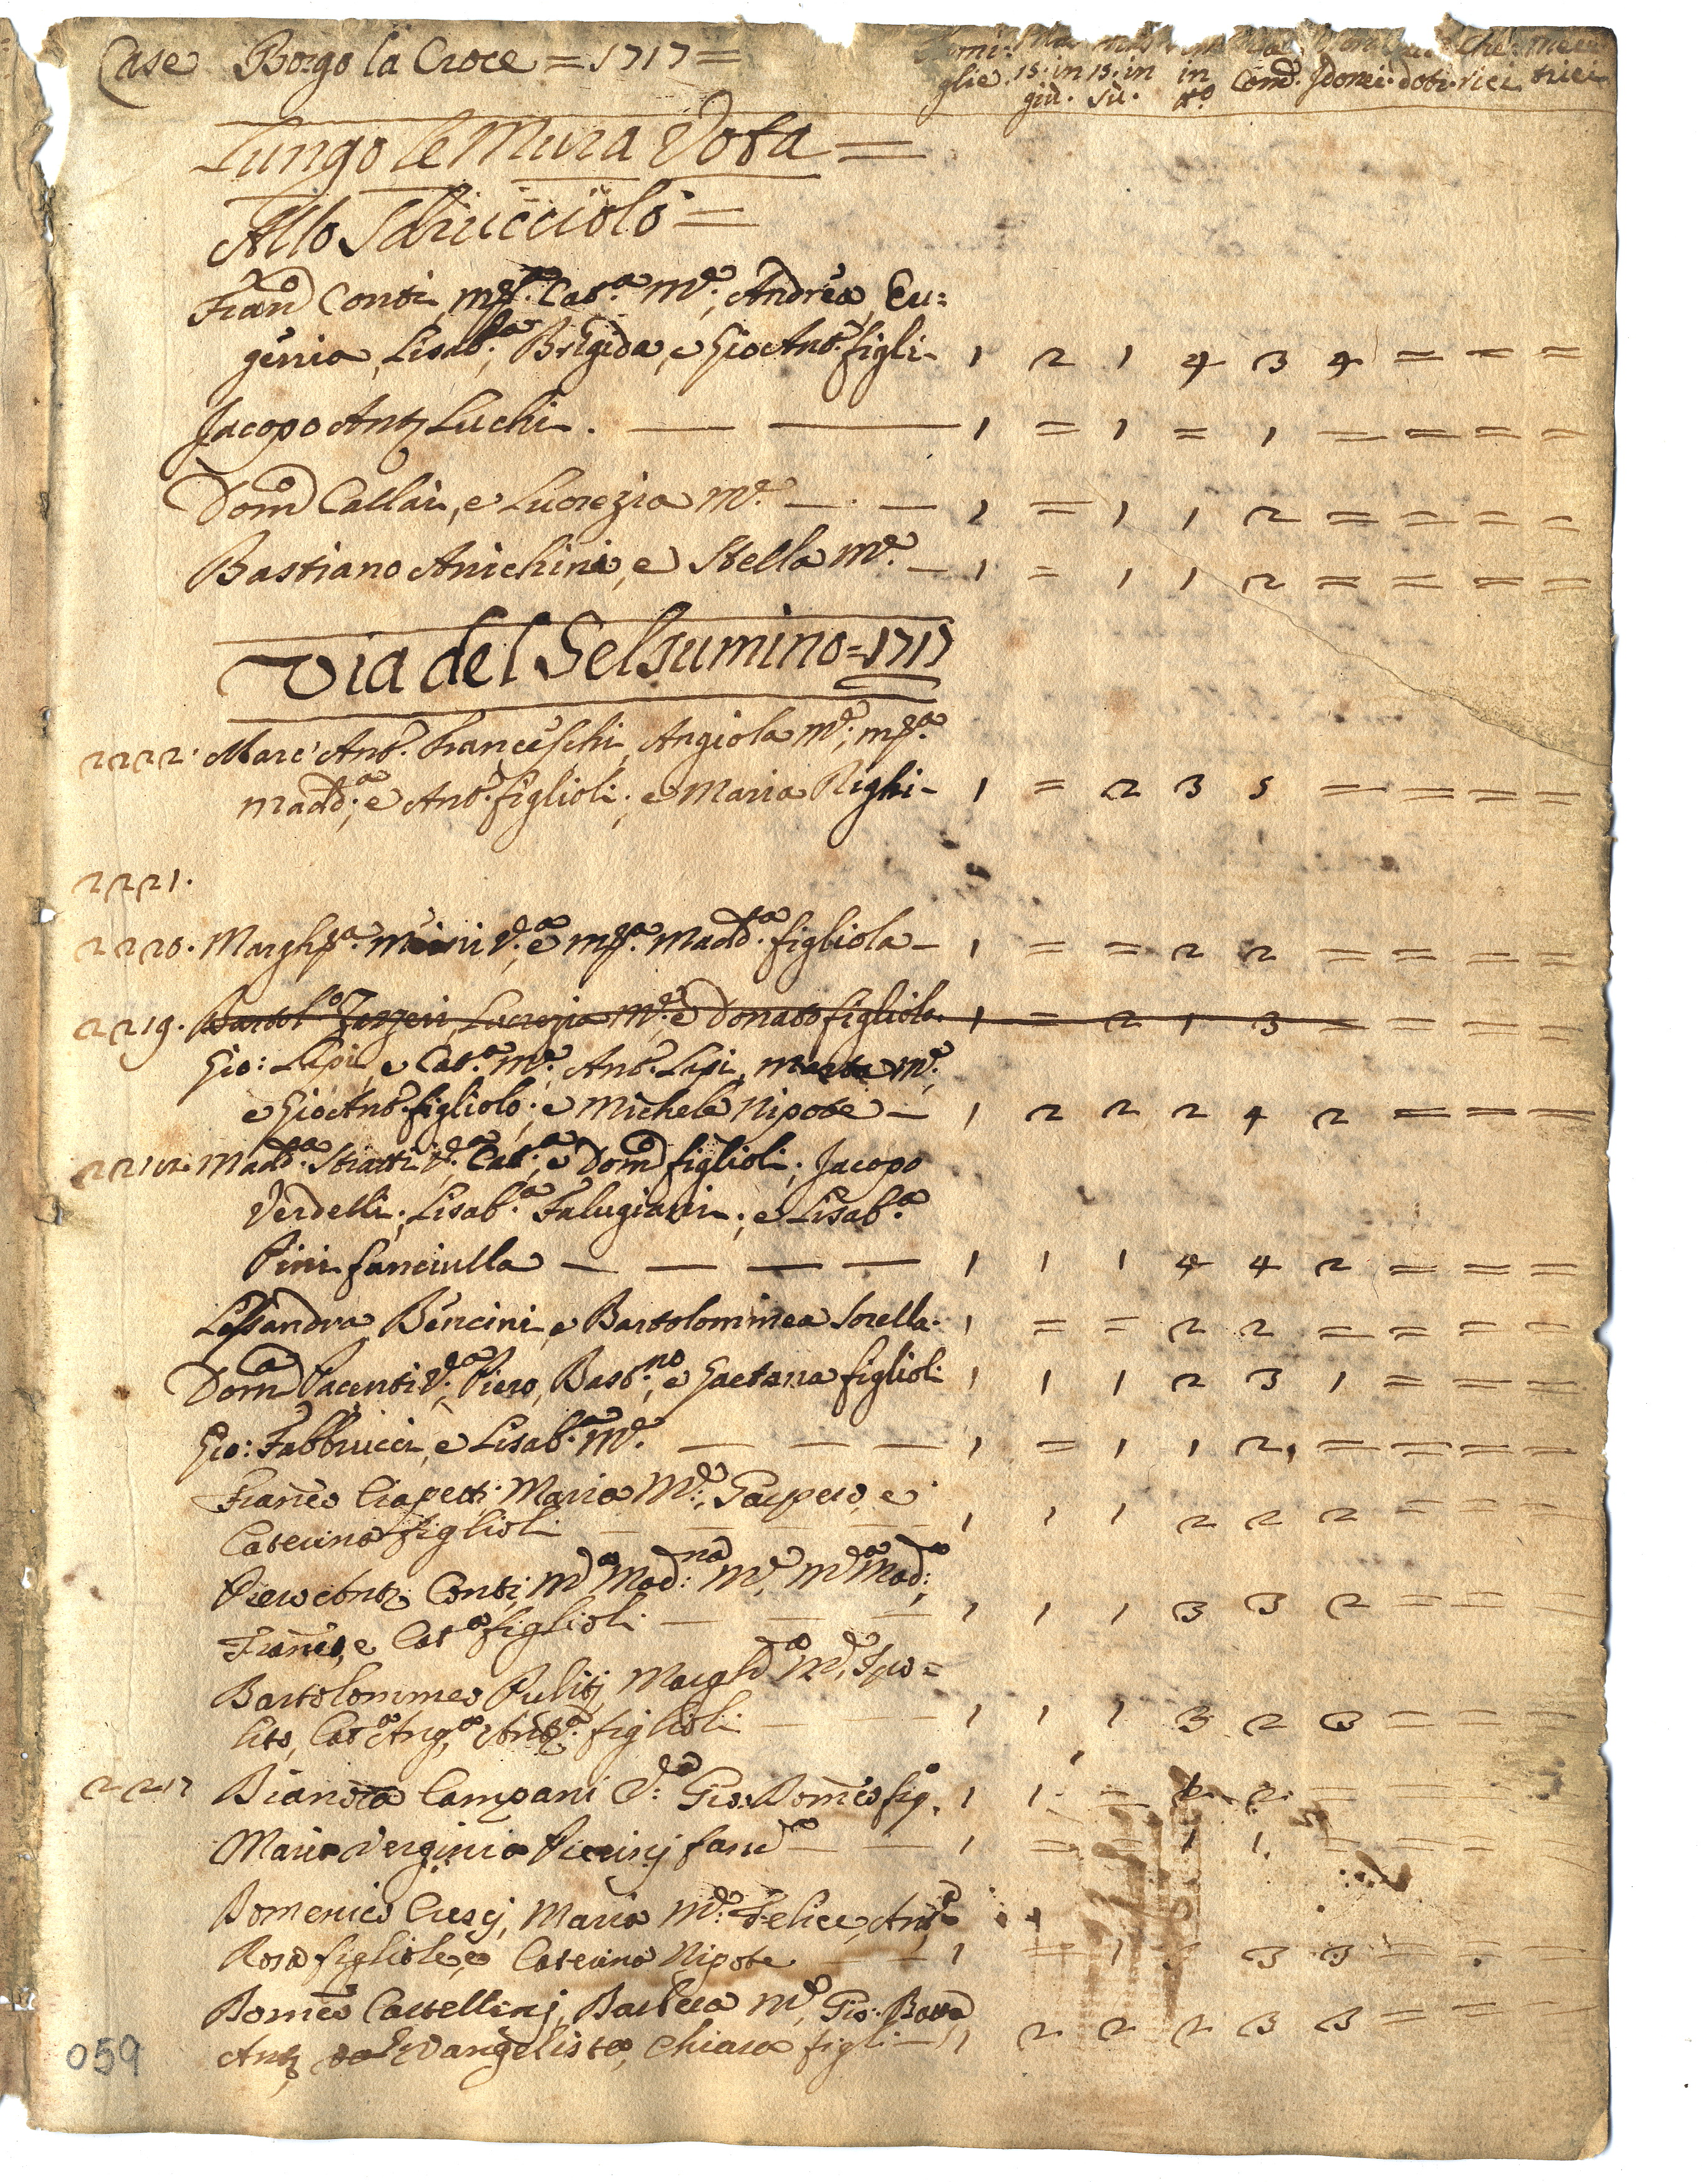 Case Borgo la Croce = 1717 =
glie. 15. in 15. in in Com.d Idonei. doti. rici trici
giù. sù. tt.o
Lungo le Mura Vota =
Allo Sdrucciolo =
Fran.o Conti, M.a Cat.a M.e; Andrea, Eu=
genia, Lisab.a; Brigida, e Gio Ant.o figli - 1 2 1 4 3 4 = = =
Jacopo Ant.o Luchi. — — 1 = 1 = 1 = = = =
Dom.o Callai, e Lucrezia M.e — — 1 = 1 1 2 = = = =
Bastiano Anichini, e Stella M.e — 1 = 1 1 2 = = = =
Via del Selsumino = 1717
2222. Marc' Ant.o Franceschi, Angiola M.e; M.a
Madd.a; e Ant.o figlioli; e Maria Righi - 1 = 2 3 5 = = = =
2221.
2220. Margh.a V.a e M.a Madd.a figliola - 1 = = 2 2 = = = =
2219. Bartol.o Lucrezia M.e e Donato figliolo. 1 = 2 1 3 = = = =
Gio: Lapi, e Cat.a M.e; Ant.o Lapi, Marta M.e;
e Gio Ant.o figliolo; e Michele Nipote — 1 2 2 2 4 2 = = =
Madd.a Stiatti V.a Cat.a; e Dom.o figlioli; Jacopo
Verdelli; Lisab.a Falugiani; e Lisab.a
Pini fanciulla — — — — 1 1 1 4 4 2 = = =
Lessandra Bencini, e Bartolommea Sorella. 1 = = 2 2 = = = =
Dom.a Pacenti V.a; Piero, Bast.no, e Gaetana figlioli 1 1 1 2 3 1 = = =
Gio: Fabbrucci, e Lisab.a M.e — — — 1 = 1 1 2, = = = =
Franc.o Ciapetti Maria M.e; Gaspero, e
Caterina figlioli — — — 1 1 1 2 2 2 = = =
Piero Ant.o Conti, M.a Mad:na M.e, M.a Mad:a,
Franc.o, e Cat.a figlioli — — — 1 1 1 3 3 2 = = =
Bartolommeo Pulitj Margh.a M.e, Ipo=
lito, Cat.a Ang.a, Ant.a figlioli — — 1 1 1 3 2 3 = = =
2217 Bianca Campani V:a Gio: Dom.co fig. 1 1 = 2 2 = = = =
Maria Verginia fanc.a — — 1 = = 1 1. = = = =
Domenico Crescj, Maria M.e: Felice, Ant.a
Rosa figliole, e Caterina Nipote — — 1 = 1 5 3 3 = = =
Dom.co Castellinj, Barbera M.e, Gio: Batta
Ant.o Evangelista, Chiara figli — 1 2 2 2 3 3 = = =
059